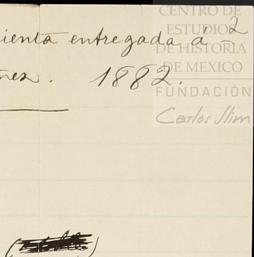 CENTRO DE
ESTUDIOS
DE HISTORIA
DE MEXICO
FUNDACIÓN
Carlos Slim
ienta entregada á 2
nez. 1882.